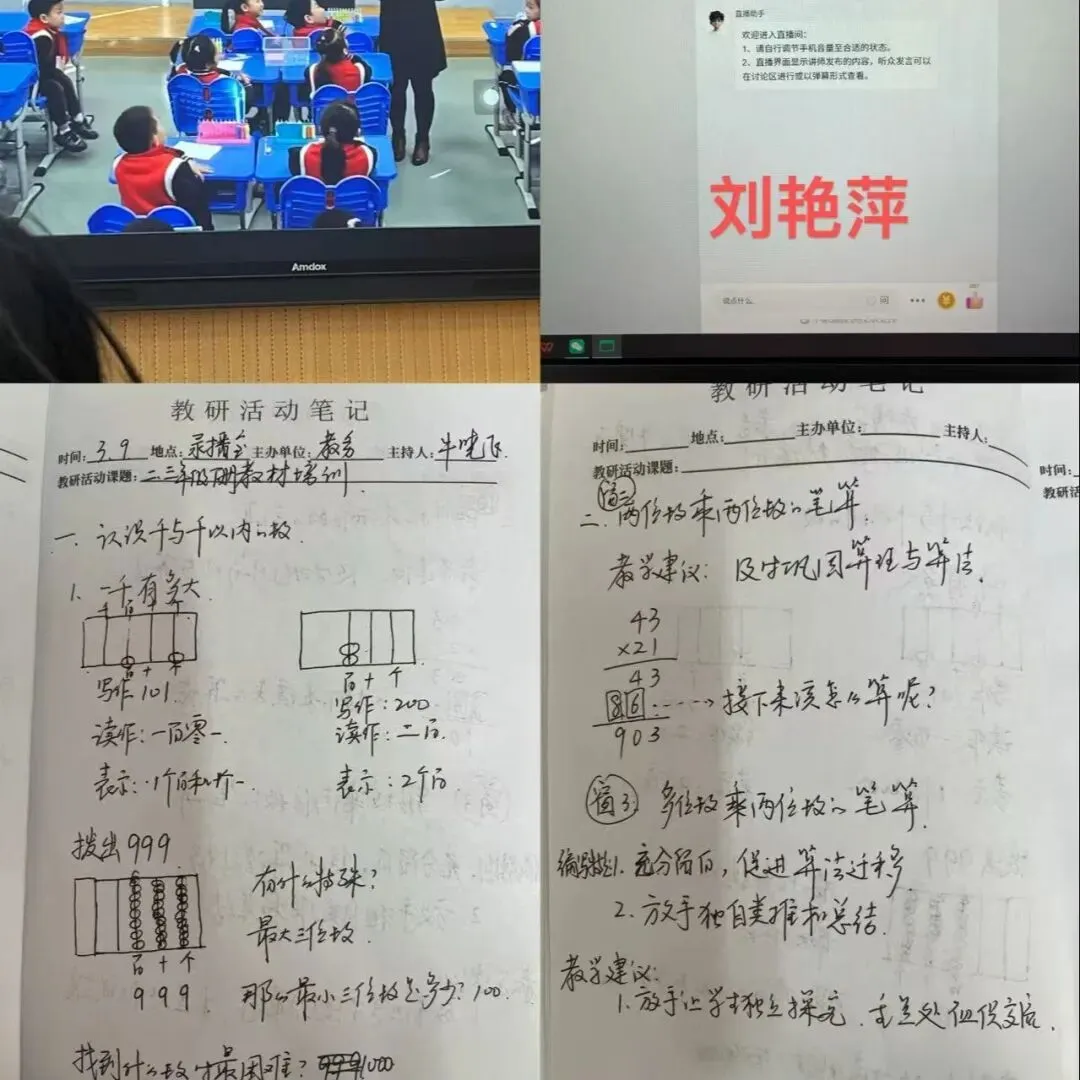 Amdox
直播助手
欢迎进入直播间:
1、请自行调节手机音量至合适的状态。
2、直播界面显示讲师发布的内容,听众发言可以
在讨论区进行或以弹幕形式查看。
刘艳萍
说点什么..
问
教研活动笔记
时间: 3.9 地点: 录播室 主办单位: 教务 主持人: 牛晓飞.
教研活动课题: 二三年级期教材培训
一. 认识千与千以内的数.
1. 一千有多大
千 百 十 个
百 十
百 十 个
写作 101
写作: 200
读作: 一百零一.
读作: 二百.
表示: 1个百和1个一
表示: 2个百
拨出 999
有什么特殊?
最大三位数.
百 十 个
9 9 9
那么最小三位数是多少? 100.
找到什么数才最困难? 1000
教研活动笔记
时间: 地点: 主办单位: 主持人:
教研活动课题:
时间:
教研活
窗二
二. 两位数乘两位数的笔算.
教学建议: 及时巩固算理与算法.
43
×21
43
86 ----> 接下来该怎么算呢?
903
窗3. 多位数乘两位数的笔算.
编写特点1. 充分留白, 促进算法迁移.
2. 放手独自类推和总结.
教学建议:
1. 放手让学生独立探究.